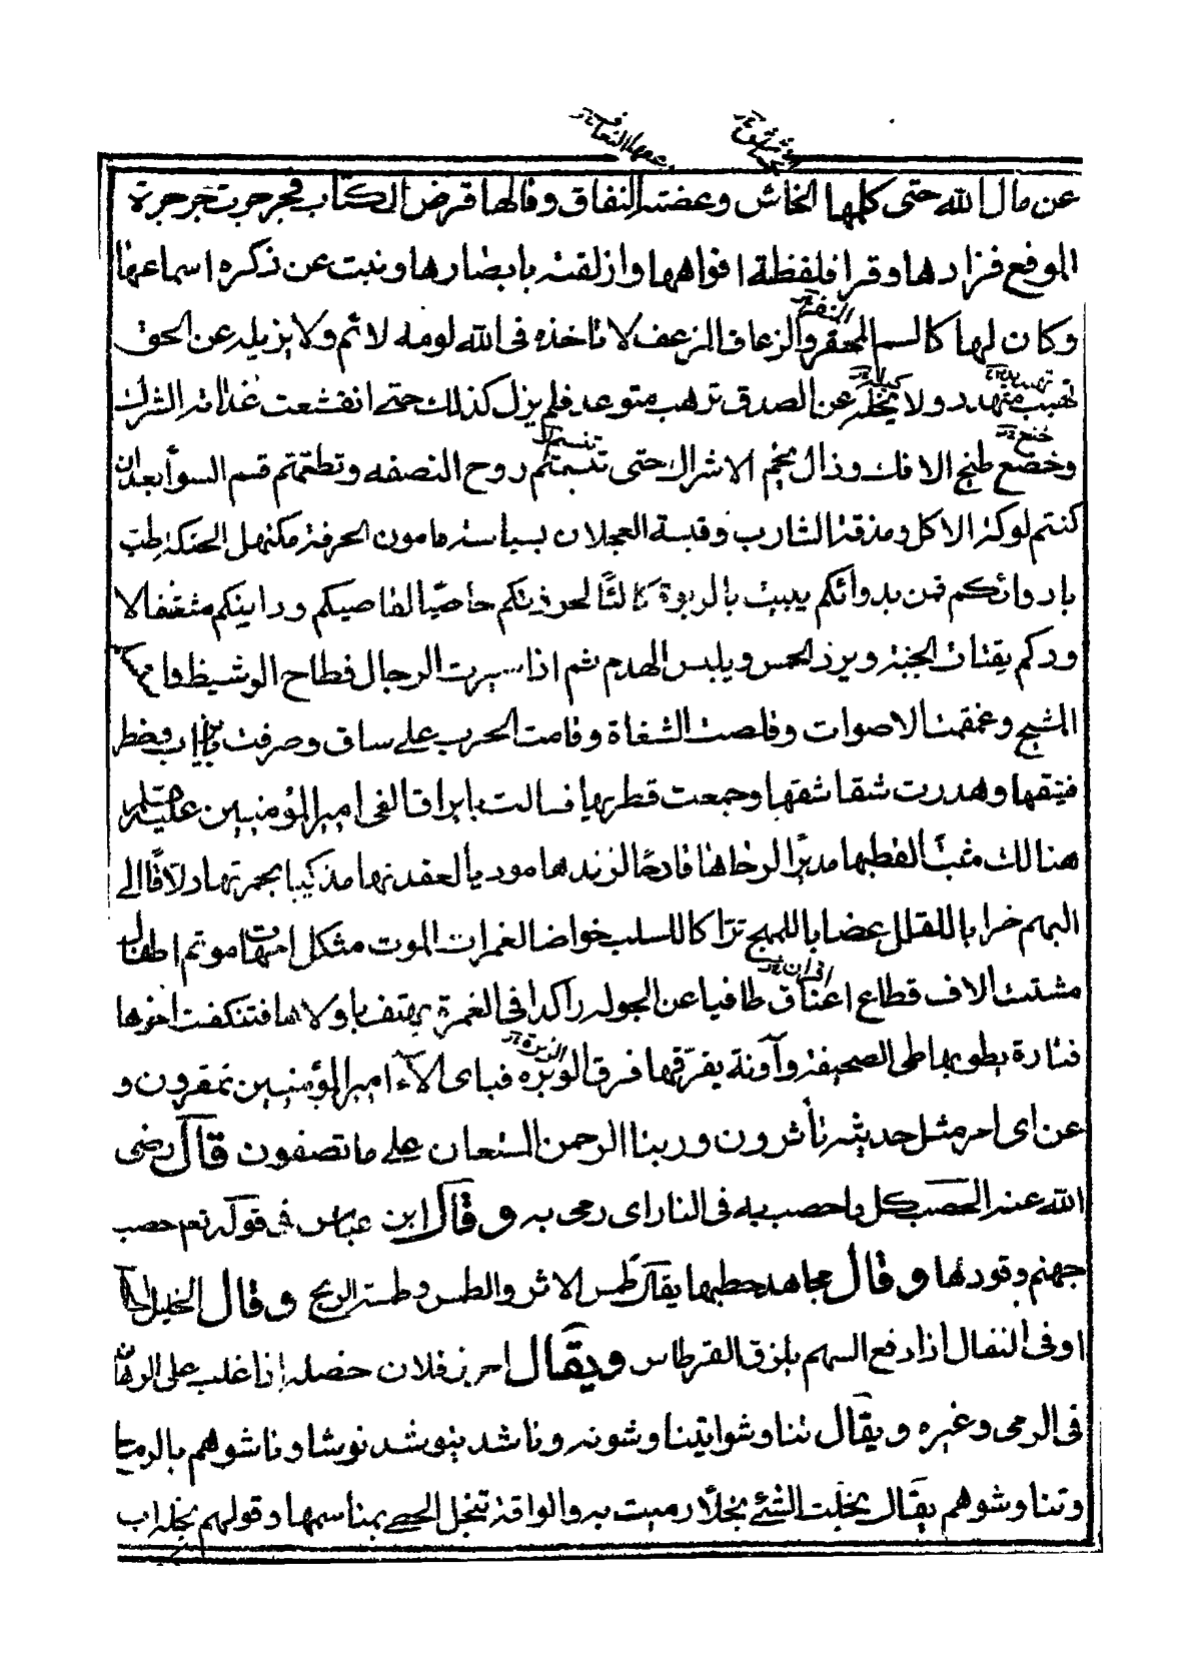 عن مال الله حتى كلها الخاش وعضته النفاق وفالها قرض الكتاب فجرجرت جرجرة
الموقع فزادها وقرا فلفظة افواهها وازلقته بابصارها ونبت عن ذكره اسماعها
وكان لها كالسم الممقر والزعاف المزعف لا تاخذه فى الله لومه لائم ولا يزيله عن الحق
تهيب متهدد ولا عن الصدق ترهب متوعد فلم يزل كذلك حتى انقشعت الشرك
وخضع طنخ الافك وذال الاشراك حتى تنسمتم روح النصفه وتطعمتم قسم السوأ بعد ان
كنتم لوكة الاكل ومذقة الشارب وقبسة العجلان بسياسة مامون الحرفة مكتهل الحنكة طب
بادوائكم قمن بدوائكم يبيت بالربوة كالئا لحوذتكم حاصيا لقاصيكم ودانيكم مثقفا لا
ودكم يقتات الجنبة ويرذ الخمس ويلبس الهدم ثم اذا سبرت الرجال فطاح الوشيظ
المشيح وغمغمت الاصوات وقلصت الشفاة وقامت الحرب على ساق وصرفت
فنيقها وهدرت شقاشقها وجمعت قطريها فسالت بابراق الفى امير المؤمنين
هنالك مثبتا لقطبها مديرا لرحاها قادحا لزندها موريا لعقدتها مذكيا بجمرتها دلافا الى
البهم ضرابا للقلل عضابا للمهج تراكا للسلب خواضا لغمرات الموت مثكل امهات موتم اطفال
مشتت الاف قطاع اعناق طافيا عن الجوله راكدا فى الغمرة يهتف باولاها فتنكفت اخرها
فتارة يطويها طى الصحيفة وآونة يفرقها فرق الوبرة فباى الآء امير المؤمنين تمترون و
عن اى امر مثل حديثه تأثرون وربنا الرحمن المستعان على ما تصفون قال رضى
الله عنه الحصب كل ما حصب به فى النار اى رمى به و قال ابن عباس فى قوله تع حصب
جهنم وقودها و قال مجاهد حطبها يقال طمس الاثر والطس وطسته الريح و قال الخليل
او فى النضال اذا دفع السهم بلزق القرطاس و يقال احرز فلان خصله اذا غلب على الرهان
فى الرمى وغيره و يقال تناوشوا يتناوشونه وناشد ينوشد نوشا وناشوهم بالرماح
وتناوشوهم يقال نجلت الشئ نجلا رميت به والناقة تنجل الحصى بمناسمها وقولهم نجله اب